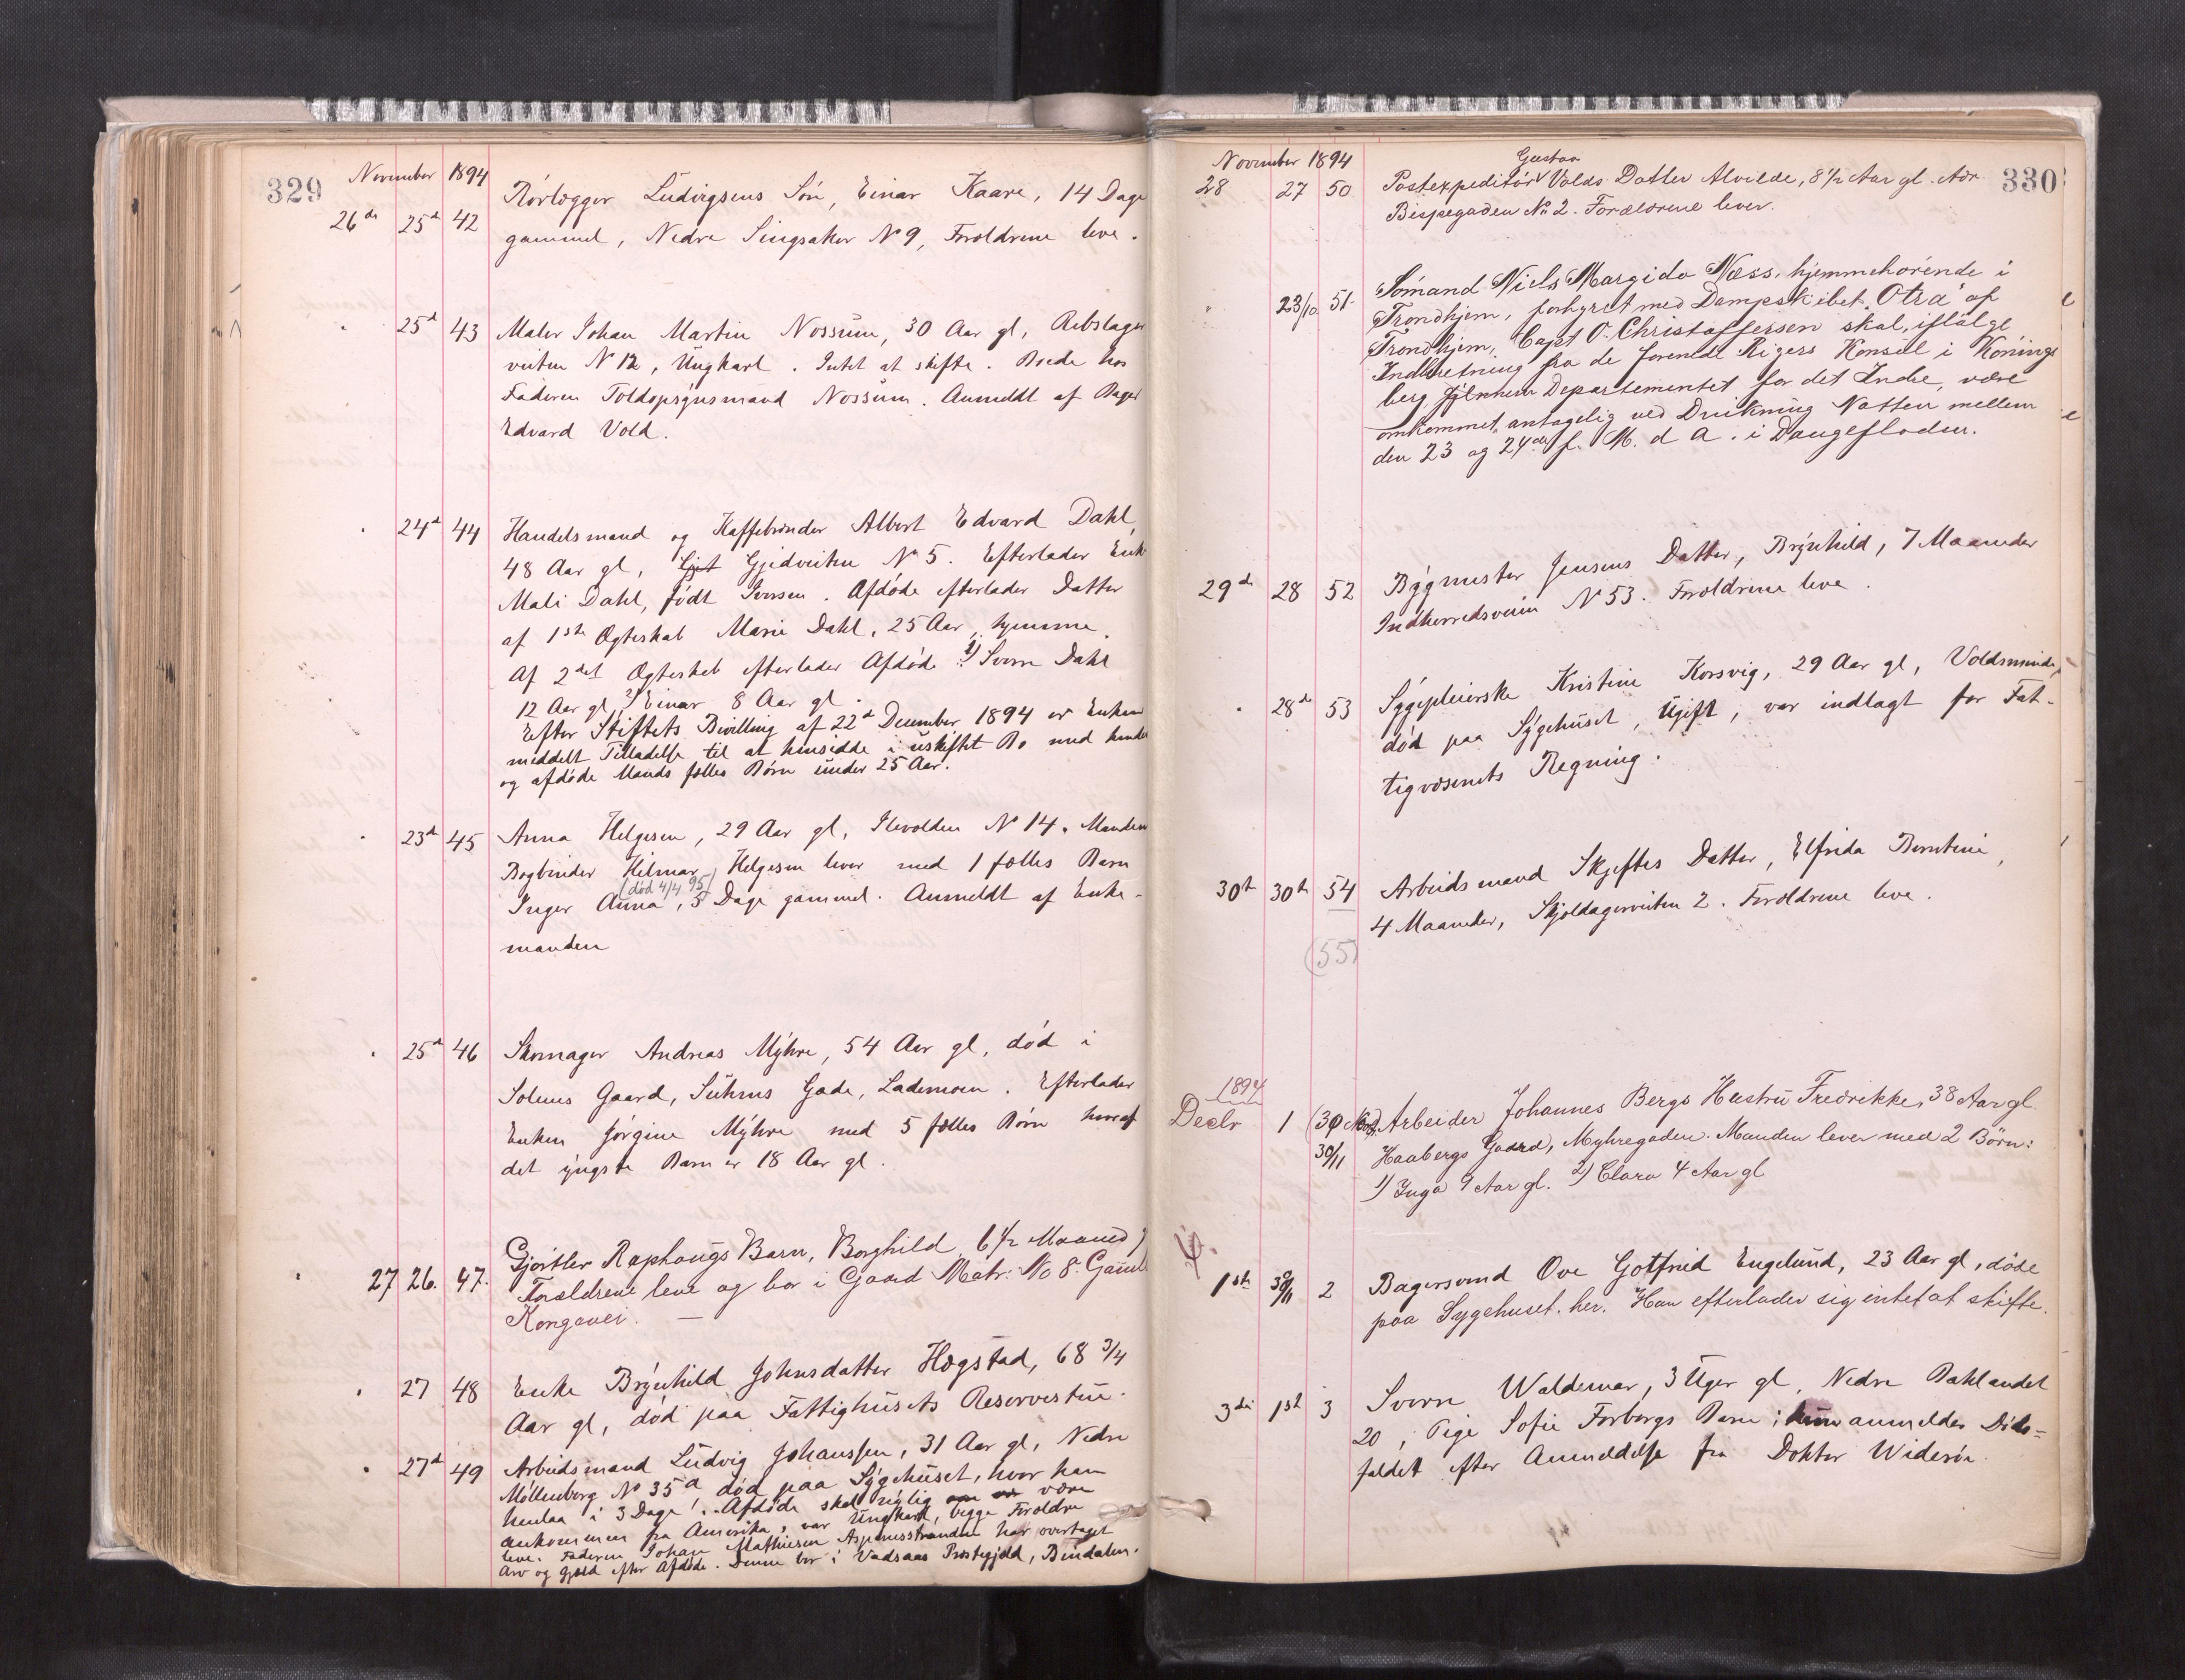 329
November 1894
26de 25d 42 Rörlægger Ludvigsens Sön, Einar Kaare, 14 Dage
gammel, Nedre Singsaker No 9, Forældrene leve.
25d 43 Maler Johan Martin Nossum, 30 Aar gl, Rebslager
veiten N 12, Ungkarl. Intet at skifte. Boede hos
Faderen Toldopsynsmand Nossum. Anmeldt af Bager
Edvard Vold.
24d 44 Handelsmand og Kaffebrænder Albert Edvard Dahl,
48 Aar gl, Gjet Gjedveiten No 5. Efterlader Enk
Mali Dahl, födt Iversen. Afdöde efterlader Datter
af 1ste Ægteskab Marie Dahl, 25 Aar, hjemme.
Af 2det Ægteskab efterlader Afdöde 1) Sverre Dahl
12 Aar gl, 2) Einar 8 Aar gl.
Efter Stiftets Bevilling af 22d December 1894 er Enken
meddelt Tilladelse til at hensidde i uskiftet Bo med hendes
og afdöde Mands fælles Börn under 25 Aar.
23d 45 Anna Helgesen, 29 Aar gl, Ilevolden No 14. Manden
Bogbinder Hilmar Helgesen lever med 1 fælles Barn
(död 4/4 95)
Inger Anna, 5 Dage gammel. Anmeldt af Enke-
manden
25d 46 Skomager Andreas Myhre, 54 Aar gl, död i
Solems Gaard, Suhms Gade, Lademoen. Efterlader
Enken Jörgine Myhre med 5 fælles Börn hvoraf
det yngste Barn er 18 Aar gl.
27 26. 47. Gjörtler Raphaugs Barn, Borghild 6 1/2 Maaned
Forældrene leve og bor i Gaard Matr: No 8. Gaml
Kongevei. —
27 48 Enke Brynhild Johnsdatter Hogstad, 68 3/4
Aar gl, död paa Fattighusets Reservestue.
27d 49 Arbeidsmand Ludvig Johanssen, 31 Aar gl, Nedre
Möllenberg No 35a död paa Sygehuset, hvor han
henlaa i 3 Dage. Afdöde skal nylig være
ankommen fra Amerika, var Ungkarl, begge Forældre
leve. Faderen Johan Mathiesen Aspenesstranden har overtaget
Arv og Gjæld efter Afdöde. Denne bor i Vadsaas Præstegjæld, Bindalen.
330
November 1894
Gustav
28 27 50 Postexpeditör Volds Datter Alvilde, 8 1/2 Aar gl. Adr
Bispegaden No 2. Forældrene lever.
23/10 51. Sömand Niels Margido Næss, hjemmehörende i
Trondhjem, forhyret med Dampskibet "Otra" af
Trondhjem, Capt O. Christoffersen skal, ifölge
Indberetning fra de forenede Rigers Konsul i Könings
berg, Departementet for det Indre, være
omkommet, antagelig ved Drukning Natten mellem
den 23 og 24de f. M. d A. i Dangefloden.
29de 28 52 Bygmester Jensens Datter, Brynhild, 7 Maaneder
Indherredsveien No 53. Forældrene leve.
28de 53 Sygepleierske Kristine Korsvig, 29 Aar gl, Voldsminde,
död paa Sygehuset, Ugift, var indlagt for Fat-
tigvæsenets Regning.
30te 30te 54 Arbeidsmand Skjeftes Datter, Elfrida Berntine,
4 Maaneder, Skjoldagerveiten 2. Forældrene leve.
(55)
1894
Decbr 1 30/11 Arbeider Johannes Bergs Hustru Fredrikke, 38 Aar gl.
Haabergs Gaard, Myhregaden. Manden lever med 2 Börn:
1) Inga 9 Aar gl. 2) Clara 4 Aar gl
1ste 30/11 2 Bagersvend Ove Gotfried Engelund, 23 Aar gl, döde
paa Sygehuset. her. Han efterlader sig intet at skifte.
3die 1ste 3 Sverre Waldemar, 3 Uger gl, Nedre Baklandet
20, Pige Sofie Forbergs Barn; anmeldes Döds=
faldet efter Anmeldelse fra Doktor Wideröe.